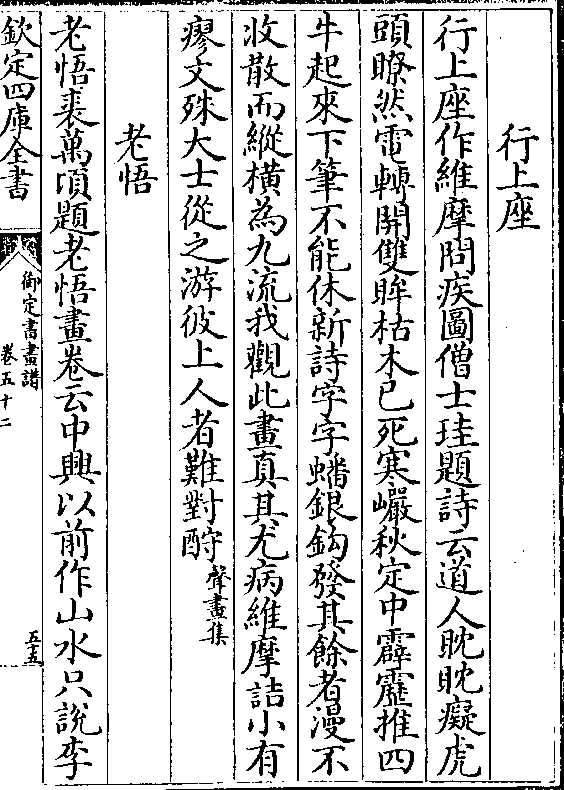 行上座
行上座作維摩問疾圖僧士珪題詩云道人眈眈癡虎
頭瞭然電轉開雙眸枯木已死寒巗秋定中霹靂推四
牛起來下筆不能休新詩字字蟠銀鈎發其餘者漫不
收散而縱橫為九流我觀此畫真其尤病維摩詰小有
瘳文殊大士從之游彼上人者難對酧聲畫集
老悟
老悟裘萬頃題老悟畫卷云中興以前作山水只說李
欽定四庫全書
御定書畫譜
卷五十二
五五